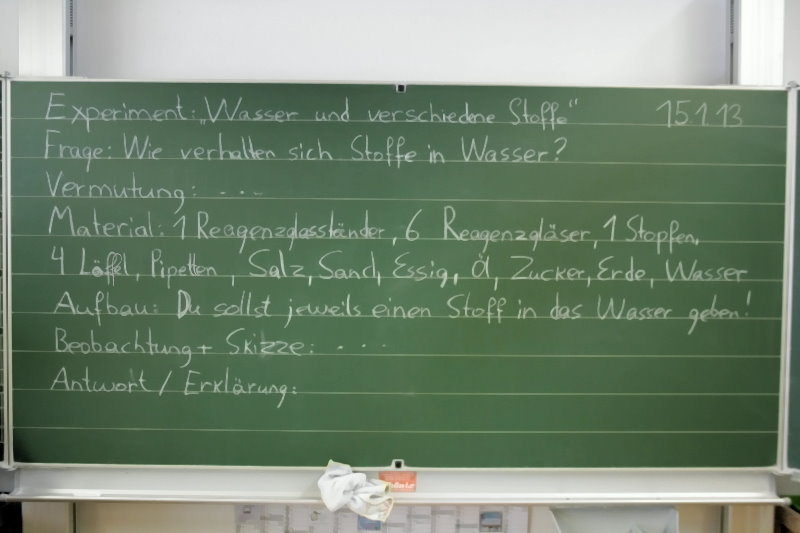 Experiment: „Wasser und verschiedene Stoffe“ 15.1.13
Frage: Wie verhalten sich Stoffe in Wasser?
Vermutung: ...
Material: 1 Reagenzglasständer, 6 Reagenzgläser, 1 Stopfen,
4 Löffel, Pipetten, Salz, Sand, Essig, Öl, Zucker, Erde, Wasser
Aufbau: Du sollst jeweils einen Stoff in das Wasser geben!
Beobachtung + Skizze: ...
Antwort / Erklärung: